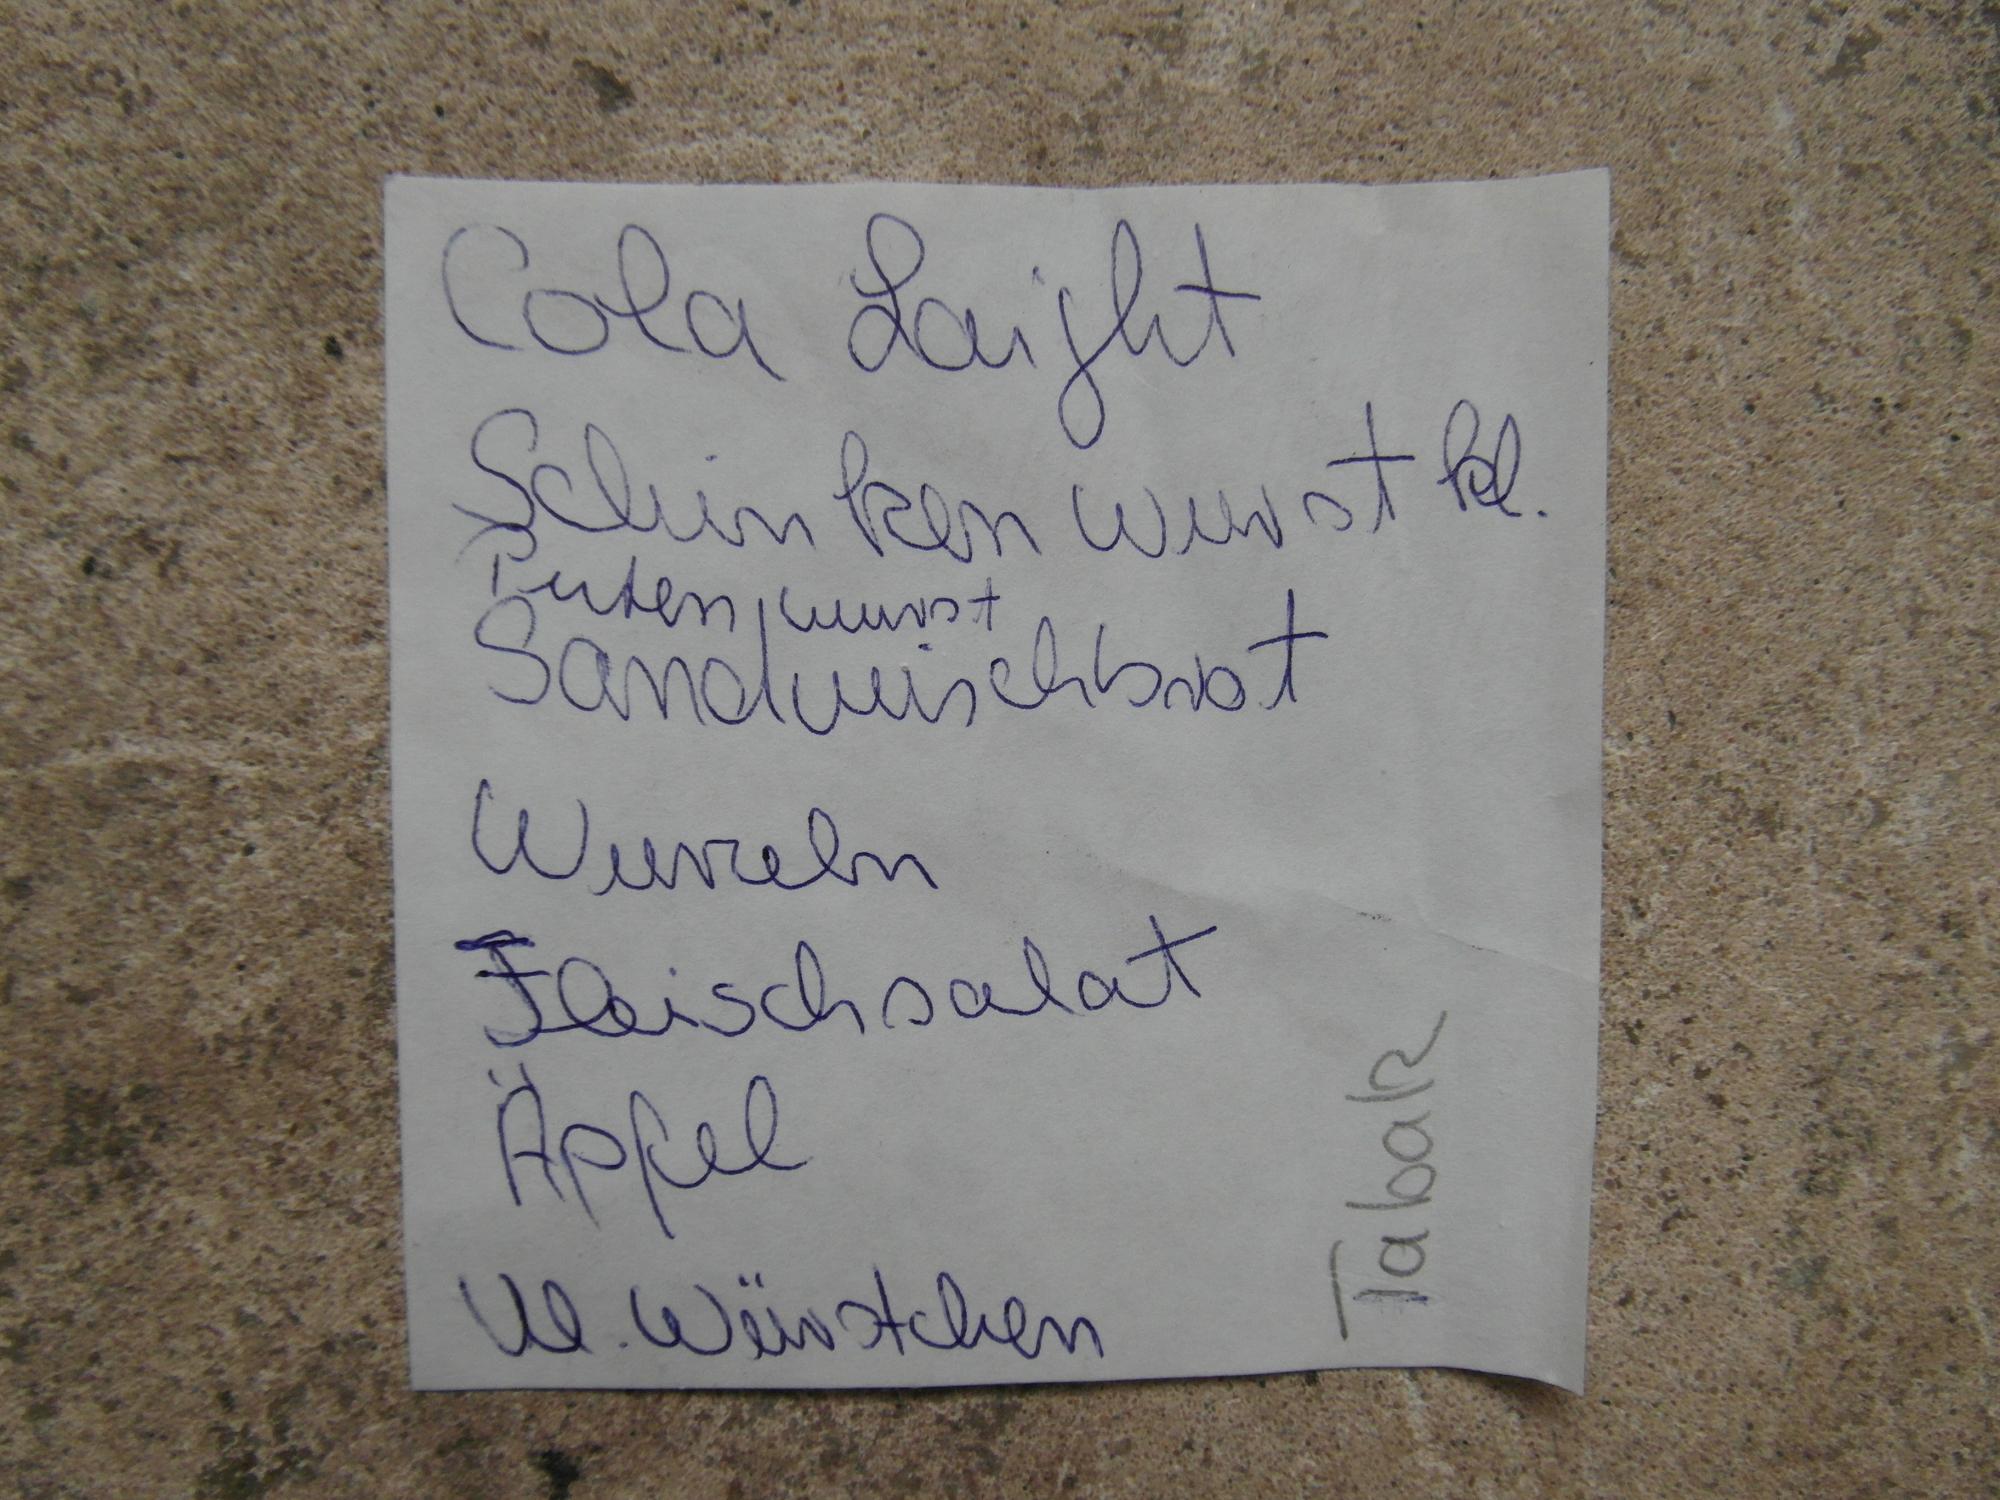 Cola Laight
Schinkenwurst kl.
Putenwurst
Sandwischbrot
Wurzeln
Fleischsalat
Äpfel
kl. Würstchen
Tabak